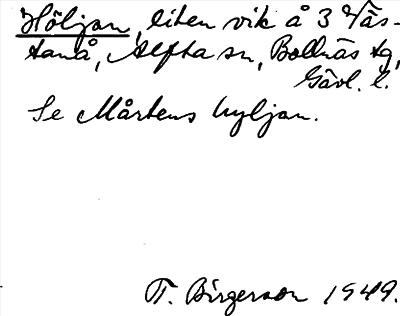 Höljan, liten vik å 3 Näs-
tanå, Alfta sn, Bollnäs tg,
Gävl. l.
Se Mårtens hyljan.
T. Birgerson 1949.